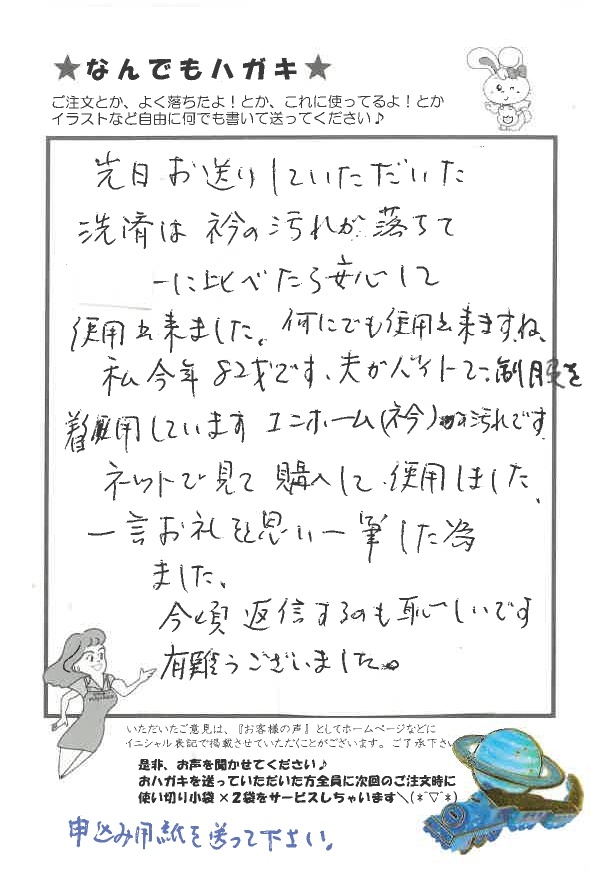 ★なんでもハガキ★
ご注文とか、よく落ちたよ！とか、これに使ってるよ！とか
イラストなど自由に何でも書いて送ってください♪
先日お送りしていただいた
洗済は衿の汚れが落ちて
ーに比べたら安心して
使用出来ました。何にでも使用出来ますね、
私今年82才です、夫がバイトで、制服を
着用しています ユニホーム(衿)の汚れです
ネットで見て購入して、使用しました、
一言お礼を思い一筆した為
ました、
今頃返信するのも恥しいです
有難うございました。
いただいたご意見は、『お客様の声』としてホームページなどに
イニシャル表記で掲載させていただくことがございます。ご了承下さい
是非、お声を聞かせてください♪
おハガキを送っていただいた方全員に次回のご注文時に
使い切り小袋×2袋をサービスしちゃいます＼(*^▽^*)
申込み用紙を送って下さい。